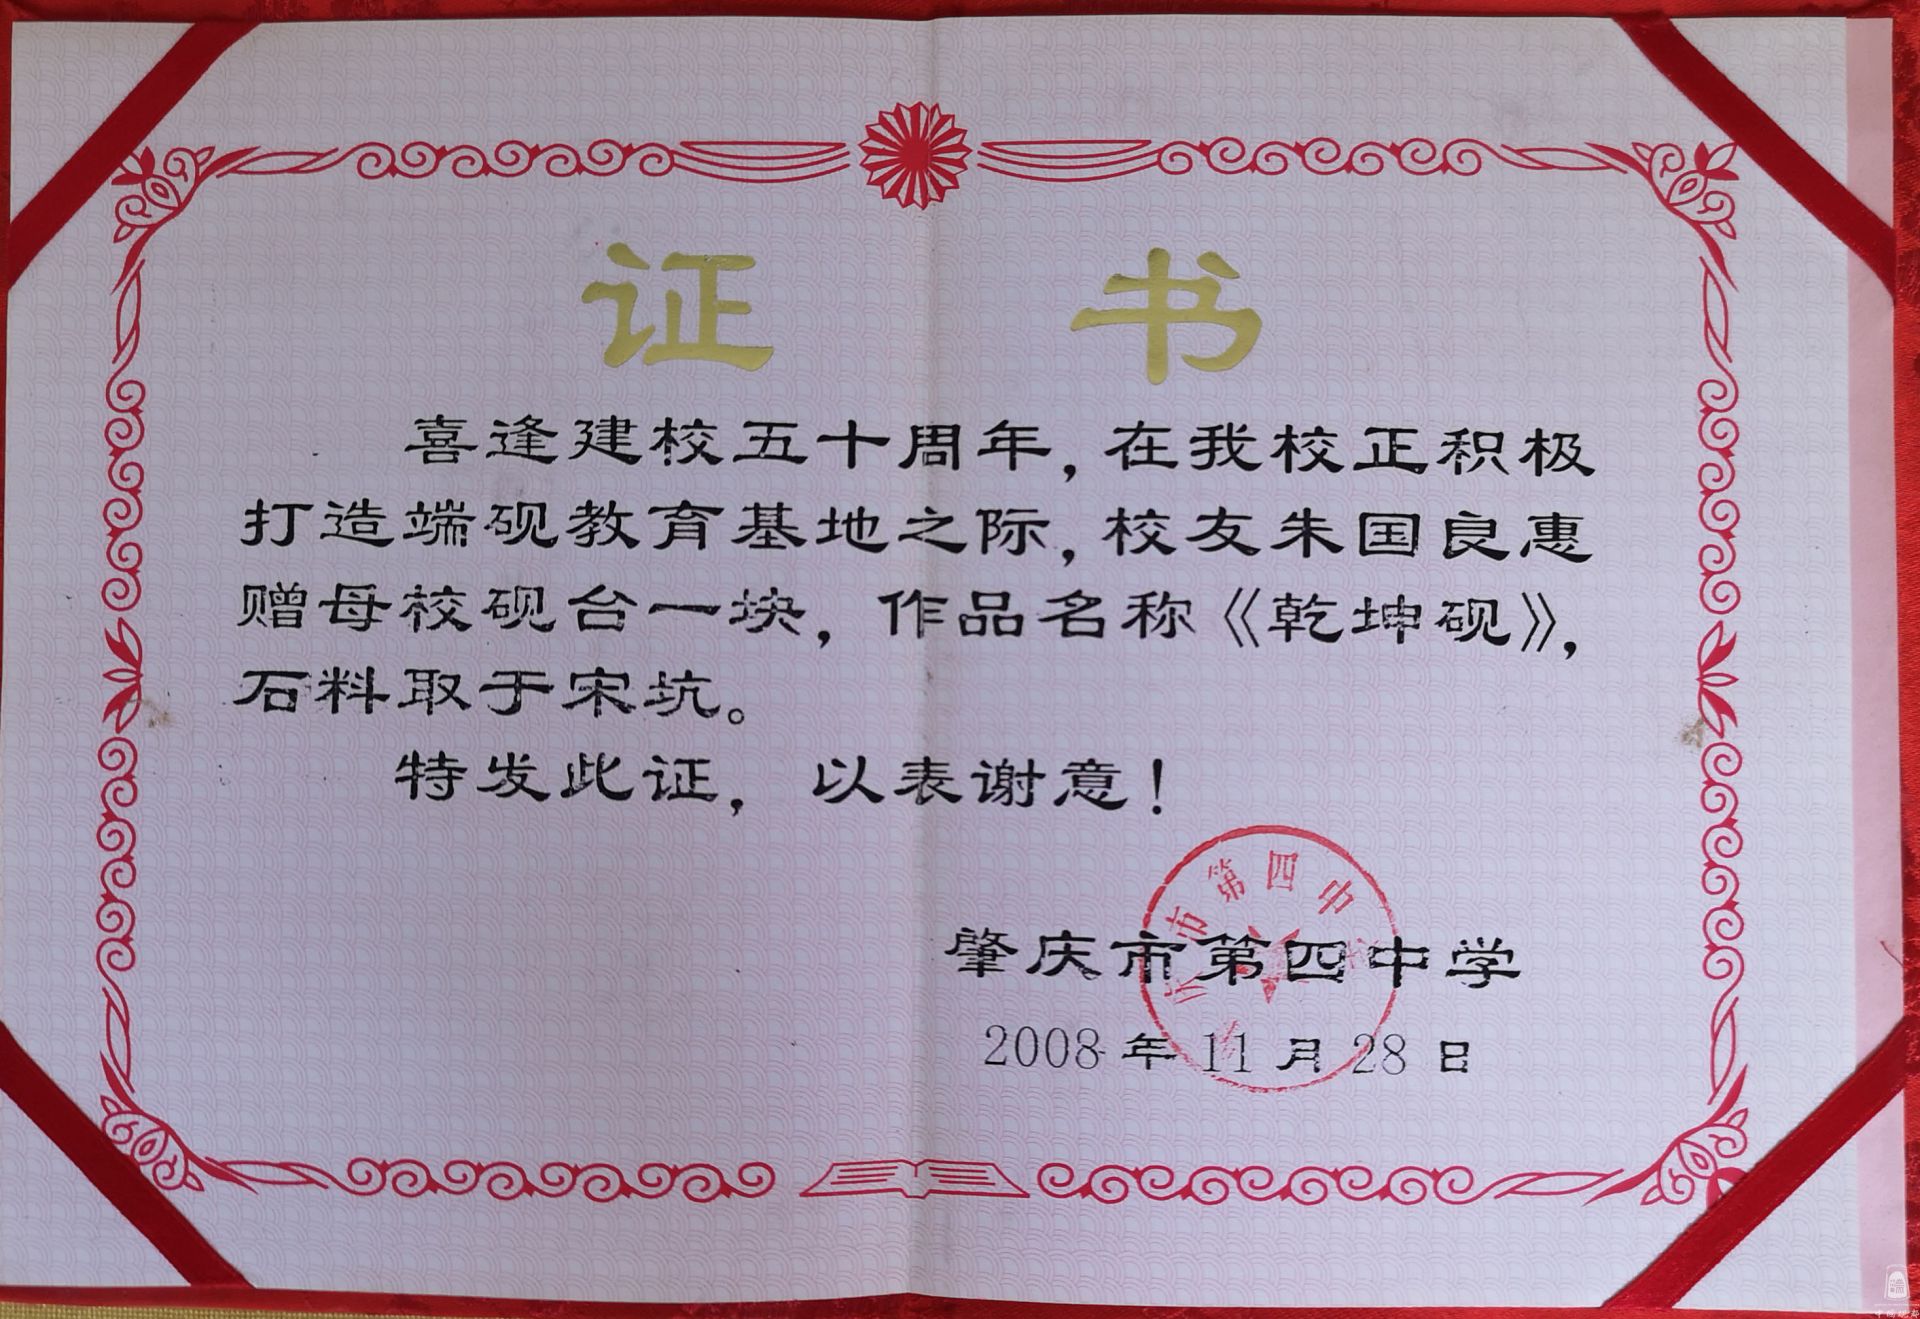 证书
喜逢建校五十周年，在我校正积极
打造端砚教育基地之际，校友朱国良惠
赠母校砚台一块，作品名称《乾坤砚》，
石料取于宋坑。
特发此证，以表谢意！
市第四中
肇庆市第四中学
2008年11月28日